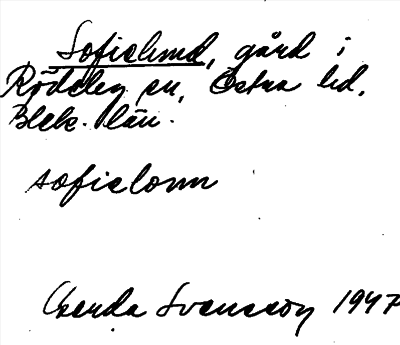 Sofielund, gård i
Rödeby sn, Östra hd,
Blek. län.
sofielonn
Gerda Svensson 1947